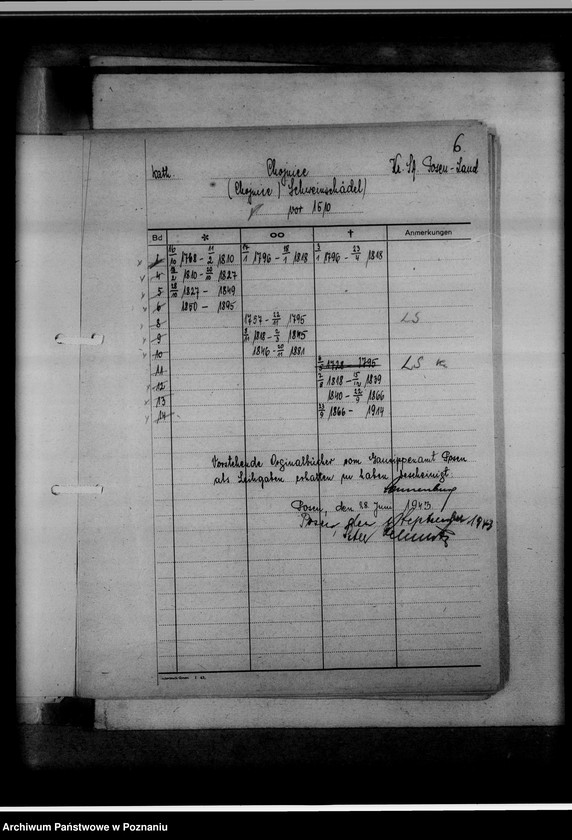 6.
kath. Chojnice Kr. Posen-Land
(Chojnice / Schweinschädel)
vor 1610
Bd * ∞ † Anmerkungen
10/10 1768 - 11/2 1810 17/1 1796 - 18/1 1818 3/1 1796 - 23/4 1818
4 18/2 1810 - 30/10 1827
5 28/10 1827 - 1849
6 1850 - 1895
8 1737 - 12/11 1795 LS
9 8/11 1818 - 2/3 1845
10 1846 - 20/11 1881
11 1728 - 1795 LS K.
12 2/8 1818 - 15/12 1839
13 1840 - 22/9 1866
14 23/9 1866 - 1914
Vorstehende Orginalbücher vom Gausippenamt Posen
als Leihgaben erhalten zu haben, bescheinigt:
Sonnenburg
Posen, den 28. Juni 1943.
Posen, den September 1943
Peter
Archiwum Państwowe w Poznaniu